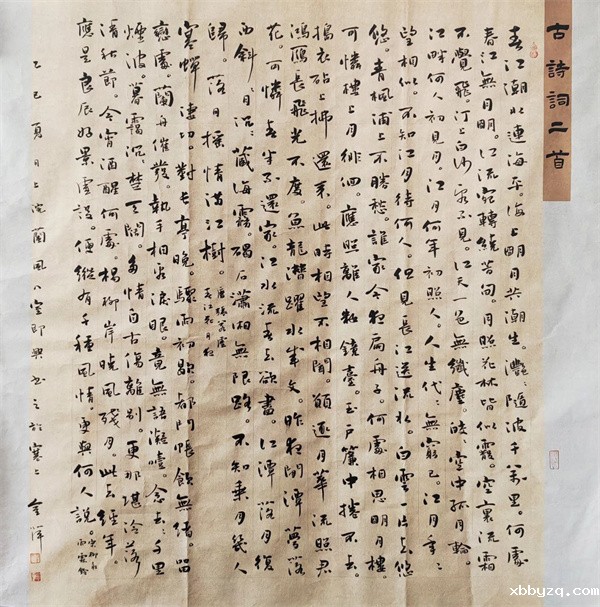 古詩詞二首
春江潮水連海平。海上明月共潮生。灧〻隨波千萬里。何處
春江無月明。江流宛轉繞芳甸。月照花林皆似霰。空裏流霜
不覺飛。汀上白沙看不見。江天一色無纖塵。皎〻空中孤月輪。
江畔何人初見月。江月何年初照人。人生代〻無窮已。江月年〻
望相似。不知江月待何人。但見長江送流水。白雲一片去悠
悠。青楓浦上不勝愁。誰家今夜扁舟子。何處相思明月樓。
可憐樓上月徘徊。應照離人妝鏡臺。玉戶簾中捲不去。
搗衣砧上拂還來。此時相望不相聞。願逐月華流照君
鴻雁長飛光不度。魚龍潛躍水成文。昨夜閒潭夢落
花。可憐春半不還家。江水流春去欲盡。江潭落月復
西斜。月沉〻藏海霧。碣石瀟湘無限路。不知乘月幾人
歸。落月搖情滿江樹。唐張若虛
春江花月夜
寒蟬淒切。對長亭晚。驟雨初歇。都門帳飲無緒。留
戀處。蘭舟催發。執手相看淚眼。竟無語凝噎。念去〻千里
煙波。暮靄沉〻楚天闊。多情自古傷離別。更那堪冷落
清秋節。今宵酒醒何處。楊柳岸曉風殘月。此去經年。
應是良辰好景虛設。便縱有千種風情。更與何人說。宋柳永
雨霖鈴
乙巳夏月上浣蘭風八室即興書之於
xbbyzq.com